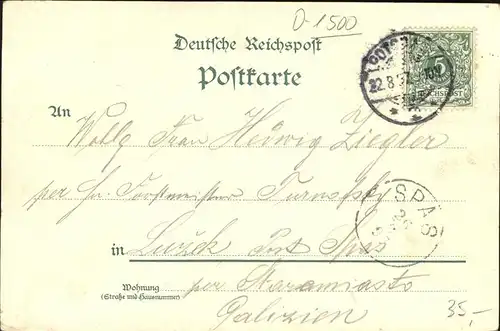 D-1500
Deutsche Reichspost
Postkarte
5
REICHSPOST
22.8.97
An
Frau Hedwig Ziegler
per Hr. Forstmeister Turnofsky
SPAS
in Luzek Post Spas
Wohnung
(Straße und Hausnummer)
per Staramiasto
Galizien
35,-